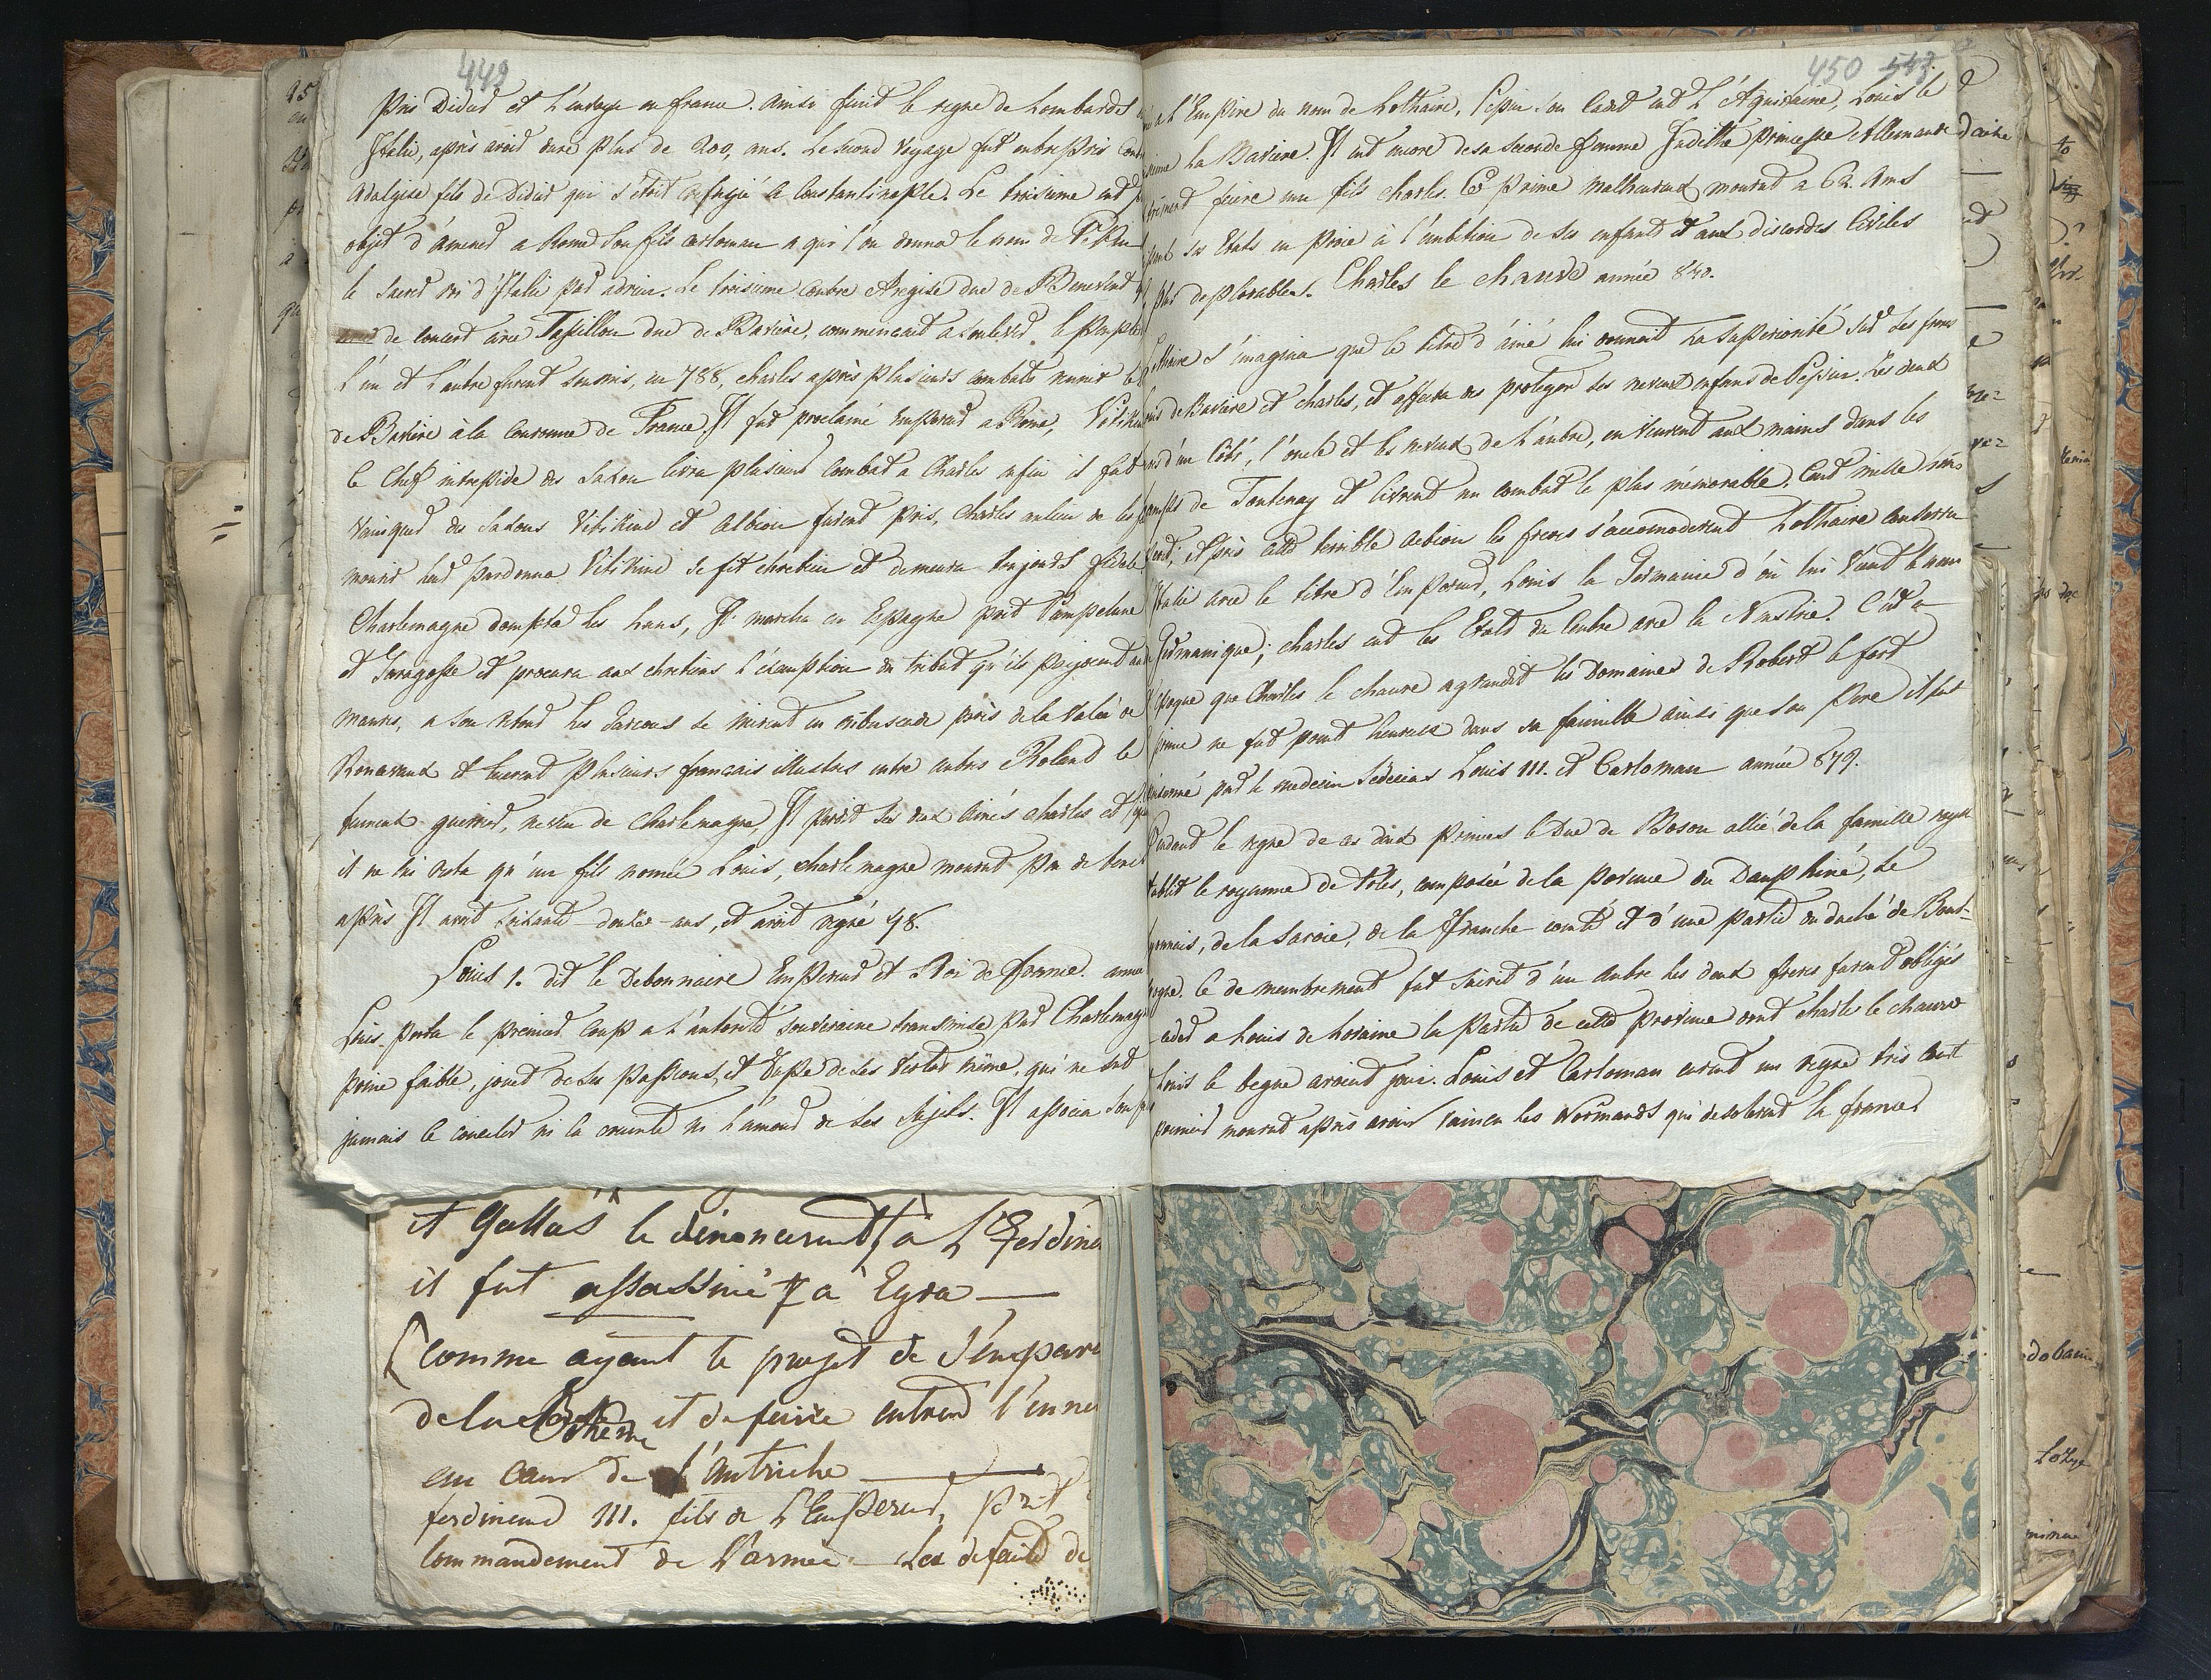 449
pris Didier et l'envoya en france. ainsi finit le regne de Lombards
Italie, après avoir duré plus de 200, ans. Le second voyage fut entrepris contre
adalgise fils de Didier qui s'étoit refugié a Constantinople. Le troisieme eut
objet d'amener a Rome son fils carloman a qui l'on donna le nom de Pepin
le sacrer roi d'Italie par adrien. Le troisieme contre Aregise duc de Benevent
de concert avec Tassillon duc de Baviere, commencait a soulever le peuple
l'un et l'autre furent soumis, en 788, charles après plusieurs combats reunit la
de Baviere à la couronne de France. Il fut proclamé empereur a Rome, Vitikin
le chef intrepide des Saxon livra plusieurs combat a Charles enfin il fut
vainqueur des Saxons Vitikind et albion furent pris, Charles au lieu de les
mourir leur pardonna Vitikind se fit chretien et demeura toujours fidele
Charlemagne dompta les huns, Il marcha en Espagne prit Pampelune
et Saragosse et procura aux chretiens l'exemption du tribut qu'ils payoient aux
maures, a son retour les Gascons se mirent en embuscade près de la valée de
Roncevaux et tuerent plusieurs francais illustres entre autres Roland le
fameux guerrier, neveu de Charlemagne, Il perdit ses deux ainés charles et
il ne lui resta qu'un fils nomée Louis, charlemagne mourut peu de tems
après Il avoit soixante-douze-ans, et avoit regné 48.
Louis 1. dit le Debonnaire Empereur et Roi de france. anne
Louis porta le premier coup a l'autorité souveraine transmise par Charlemagn
prince faible, jouet de ses passions, et dupe de ses vertus même, qui ne sut
jamais se concilier ni la crainte ni l'amour de ses sujets. Il associa son
450 543
a l'Empire du nom de Lothaire, Pepin son cadet eut l'Aquitaine, Louis le
La Baviere. Il eut encore de sa seconde femme Judithe princesse allemande d'autre
faire un fils charles. Ce prince malheureux mourut a 62. ans
ses Etats en proie à l'ambition de ses enfants et aux discordes civiles
plus deplorables. Charles le chauve année 840.
Lothaire s'imagina que le titre d'ainé lui donnoit la superiorité sur ses freres
de Baviere et charles, et affecta de proteger ses neveux enfans de Pepin. Les deux
d'un côté, l'oncle et les neveux de l'autre, en vinrent aux mains dans les
de Fontenay et livrent un combat le plus mémorable. Cent mille
après cette terrible action les freres s'accomoderent Lothaire conserva
Italie avec le titre d'Empereur, Louis la Germanie d'où lui vient le nom
Germanique; charles eut les Etats du Centre avec la Neustrie. C'est a
l'époque que Charles le chauve agrandit les domaines de Robert le fort
prince ne fut point heureux dans sa famille ainsi que son pere il fut
par le medecin Sedecias Louis III. et Carloman année 879.
Pendant le regne de ces deux princes le Duc de Boson allié de la famille royale
le royaume de Arles, composée de la provence du Dauphiné, le
lyonnais, de la Savoie, de la Franche-comté et d'une partie du duché de Bour-
gogne. Ce demembrement fut suivit d'un autre les deux freres furent obligés
ceder a Louis de Loraine la partie de cette province dont charle le chauve
Louis le begue avoient joui. Louis et Carloman eurent un regne très court
premier mourut après avoir vaincu les Normands qui desolerent la france
et Gallas le denoncerent à l'Ferdinan
il fut assassiné à Egra —
(comme ayant le projet de s'empare
de la Boheme et de faire entrer l'enne
au cœur de l'Autriche —
ferdinand III. fils de l'Empereur, prit
commandement de l'armée — Les defaite de